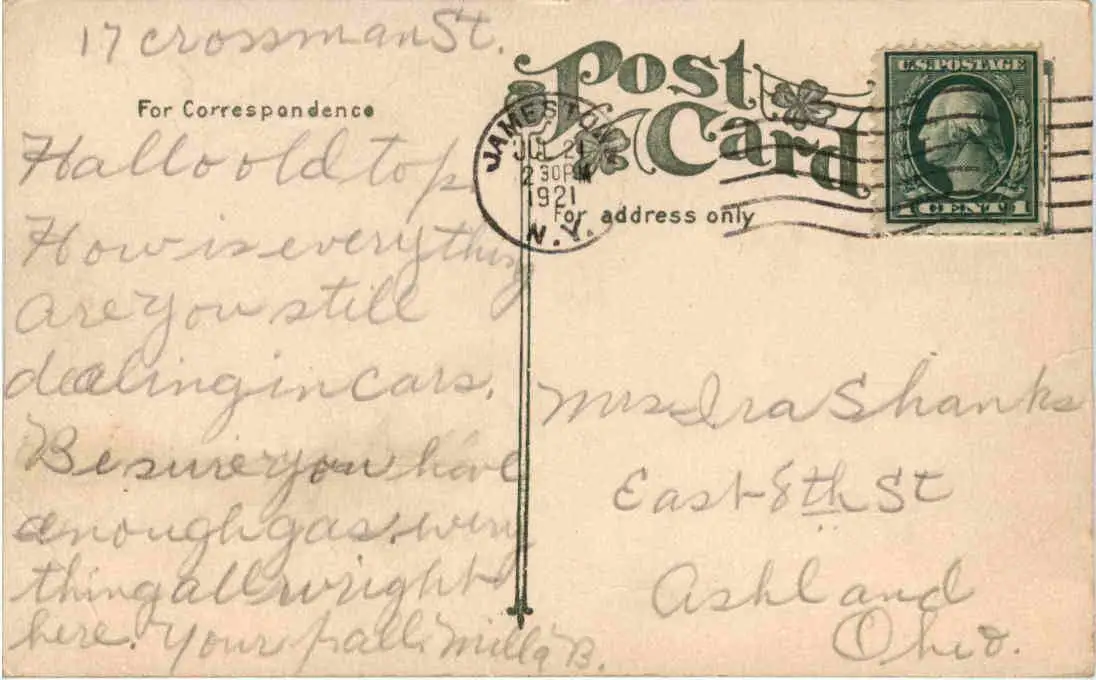 17 Crossman St.
For Correspondence
Hallo old top
How is everything
are you still
dealing in cars.
Be sure you have
enough gas. 
thing all wright
here. Your pall Milla B.
Post
Card
For address only
JAMESTOWN
21
2 30 PM
1921
N.Y.
U.S. POSTAGE
1 CENT 1
Mrs Ira Shanks
East 8th St
Ashland
Ohio.